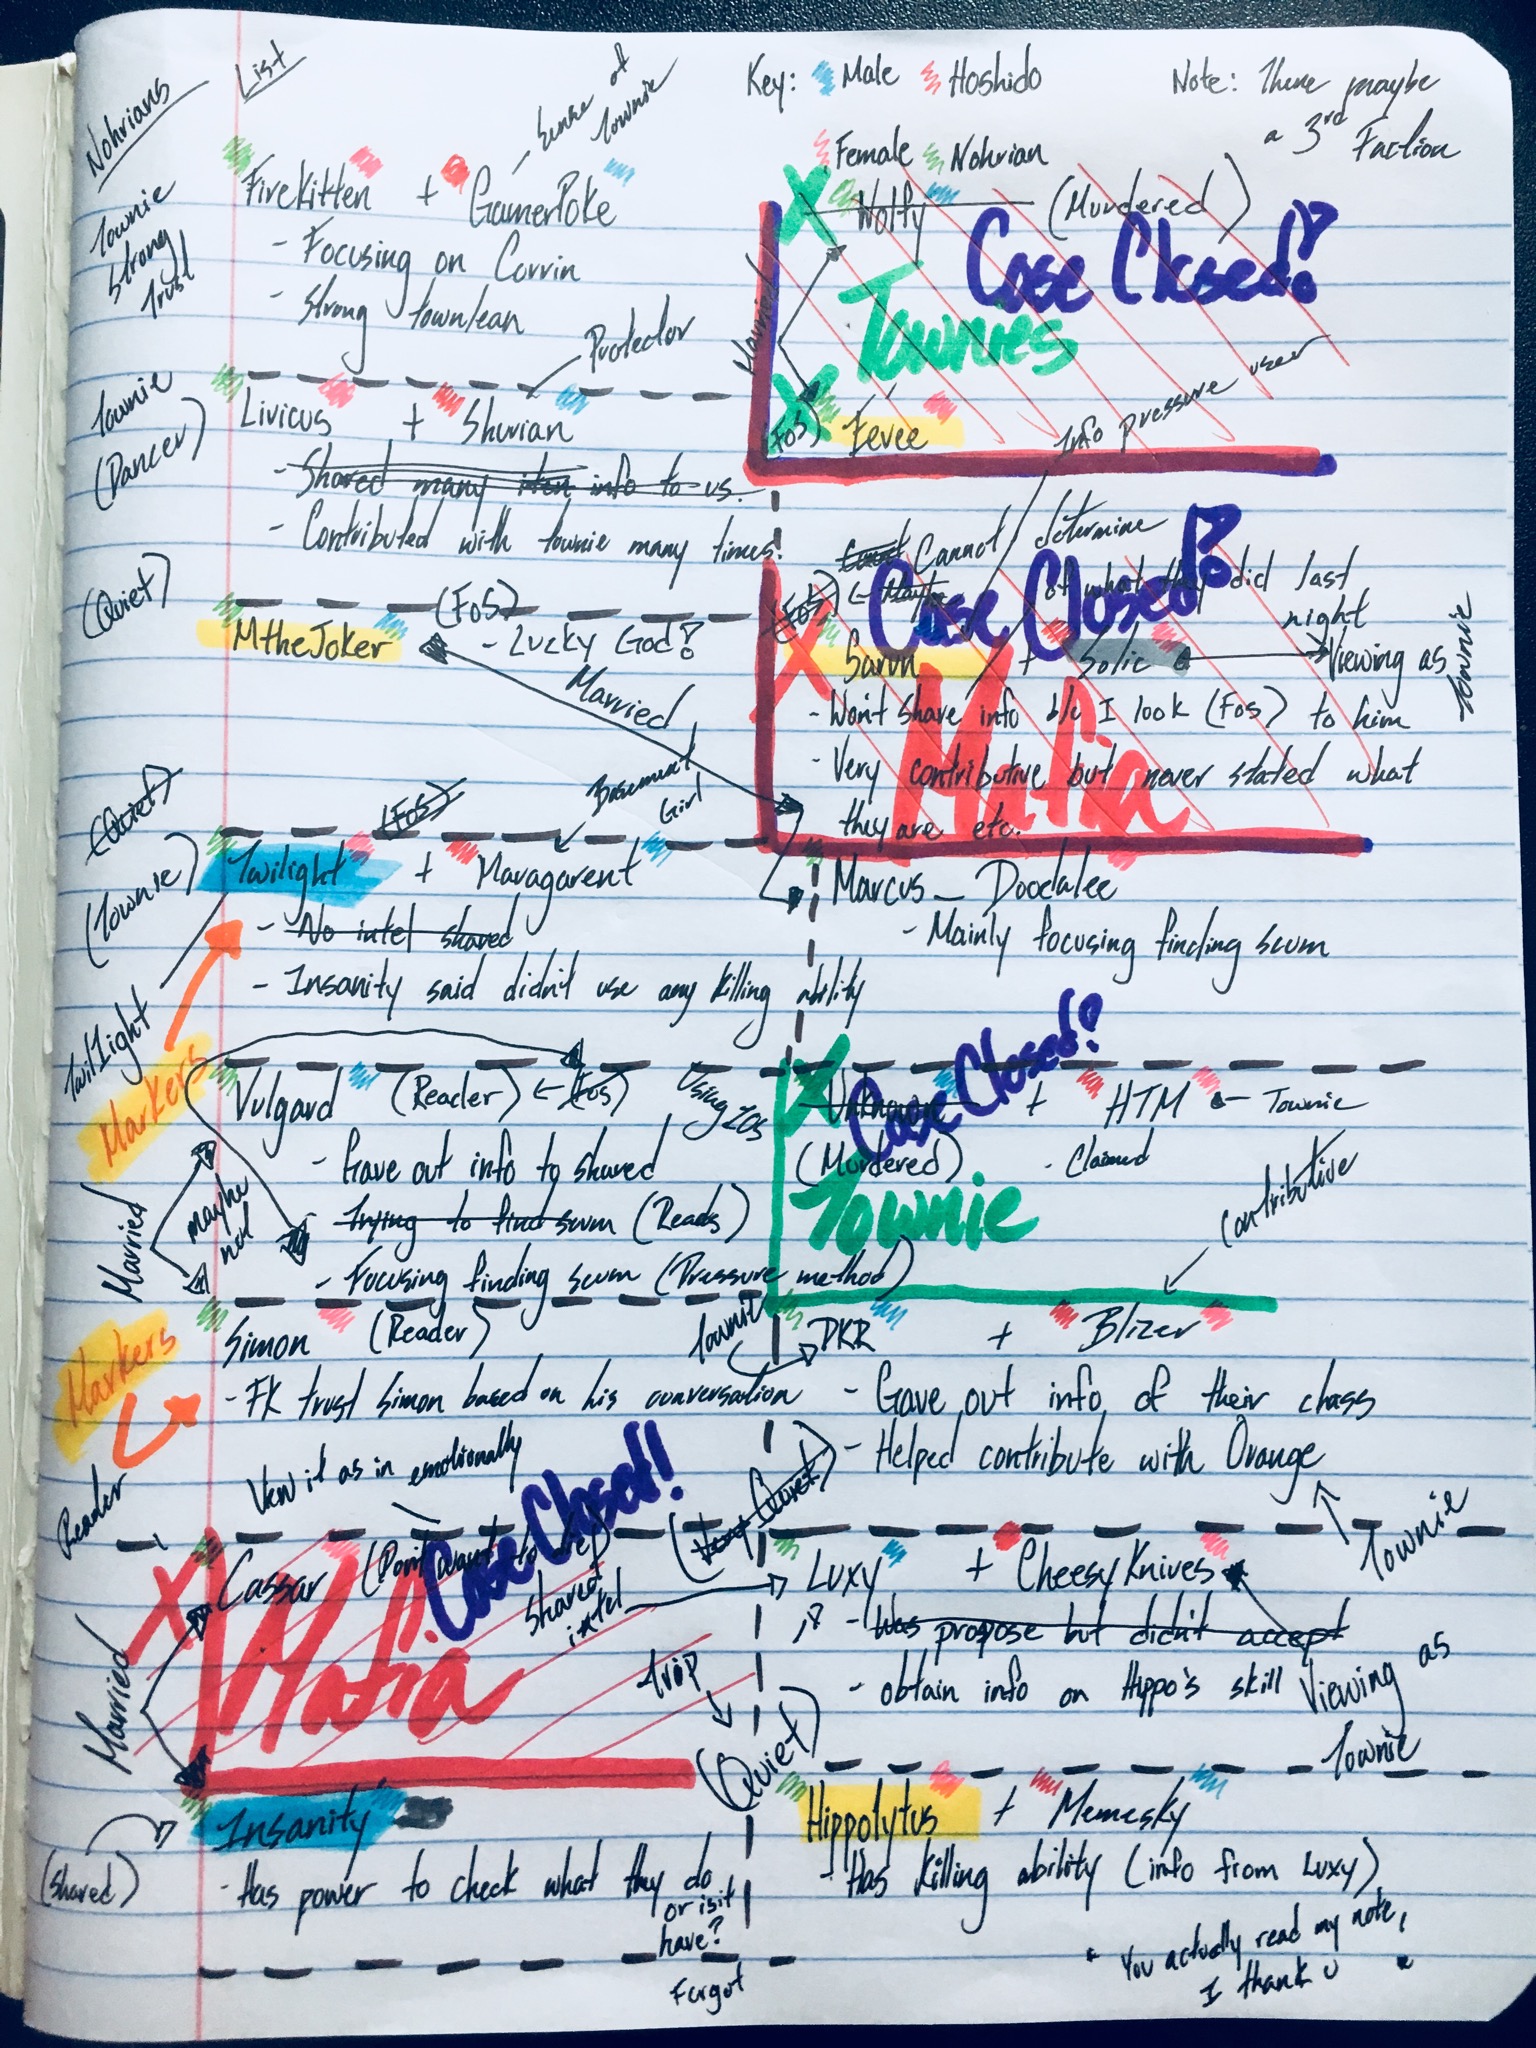 Nohrians
List
Key: Male Hoshido
Female Nohrian
Note: There maybe
a 3rd Faction
Townie
Strong
Trust
Sense of
Townie
FireKitten + GamerPoke
- Focusing on Corrin
- Strong townlean
Wolfy (Murdered)
Case Closed!
Townies
Married
(FoS) Eevee
Info pressure user
Townie
(Dancer)
Protector
Livicus + Shurian
- Shared many item info to us.
- Contributed with townie many times.
(Quiet)
(FoS)
MtheJoker - Lucky God!
Married
Cannot determine
of what they did last
night
(FoS)
Case Closed!
Sarun + Solic Viewing as
Townie
- Won't share info b/c I look (FoS) to him
- Very contributive but never stated what
they are etc.
Mafia
(Quiet)
(Townie)
(FoS)
Basement
Girl
Twilight + Maragarent
- No intel shared
- Insanity said didn't use any killing ability
Marcus - Doodalee
- Mainly focusing finding scum
Twilight
Markers
Vulgard (Reader) ← (FoS)
Using
- Gave out info to shared
- Trying to find scum (Reads)
- Focusing finding scum (Pressure method)
Married
maybe
not
Case Closed!
Unknown + HTM ← Townie
(Murdered) - Claimed
Townie
Contributive
Markers
Reader
Simon (Reader)
- FK trust Simon based on his conversation
Townie
DKR + Blizer
- Gave out info of their class
- Helped contribute with Orange
Townie
View it as in emotionally
Case Closed!
Cassar (Don't want to die)
Shared
intel
Mafia
Married
(Quiet)
Luxy + CheesyKnives
- Was propose but didn't accept
- obtain info on Hippo's skill
Viewing as
Townie
(Quiet)
(Shared)
Insanity
- Has power to check what they do
or is it
have?
Forgot
Hippolytus + Memesky
- Has killing ability (info from Luxy)
" You actually read my note,
I thank U "